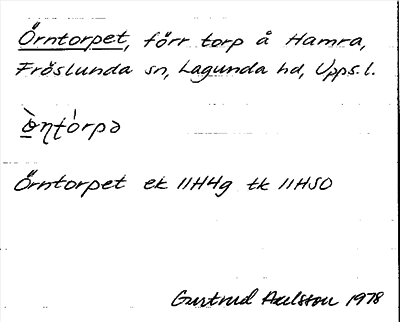 Örntorpet, förr torp å Hamra,
Fröslunda sn, Lagunda hd, Upps.l.
Örntorpet ek 11H4g tk 11HSO
Gertrud Axelsson 1978